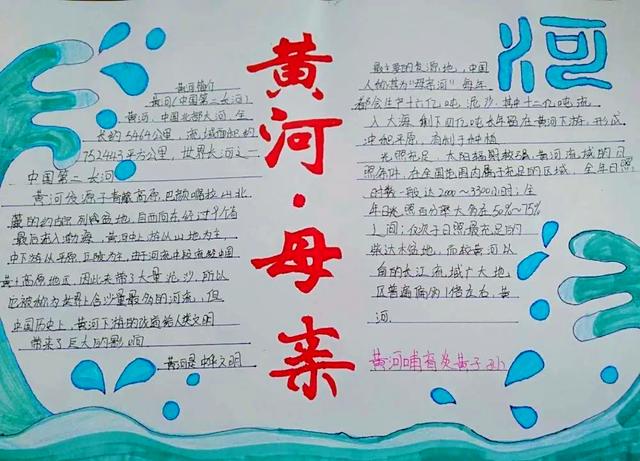 黄河·母亲
河
黄河简介
黄河(中国第二长河)
黄河，中国北部大河，全
长约5464公里，流域面积约
752443平方公里，世界长河之一
中国第二长河
黄河发源于青藏高原，巴颜喀拉山北
麓的约古宗列盆地，自西向东经过9个省
最后流入渤海，黄河中上游以山地为主
中下游以平原、丘陵为主，由于河流中段流经中国
黄土高原地区，因此夹带了大量泥沙，所以
也被称为世界上含沙量最多的河流，但
中国历史上，黄河下游的改道给人类文明
带来了巨大的影响
黄河是中华文明
最主要的发源地，中国
人称其为“母亲河”每年
都会生产十六亿吨泥沙，其中十二亿吨流
入大海，剩下四亿吨长年留在黄河下游，形成
冲积平原，有利于种植
光照充足，太阳辐射较强，黄河流域的日
照条件，在全国范围内属于充足的区域，全年日照
时数一般达2000～3300小时；全
年日照百分率大多在50%～75%
之间；仅次于日照最充足的
柴达木盆地，而较黄河以
南的长江流域广大地
区普遍偏多1倍左右，黄
河
黄河哺育炎黄子孙